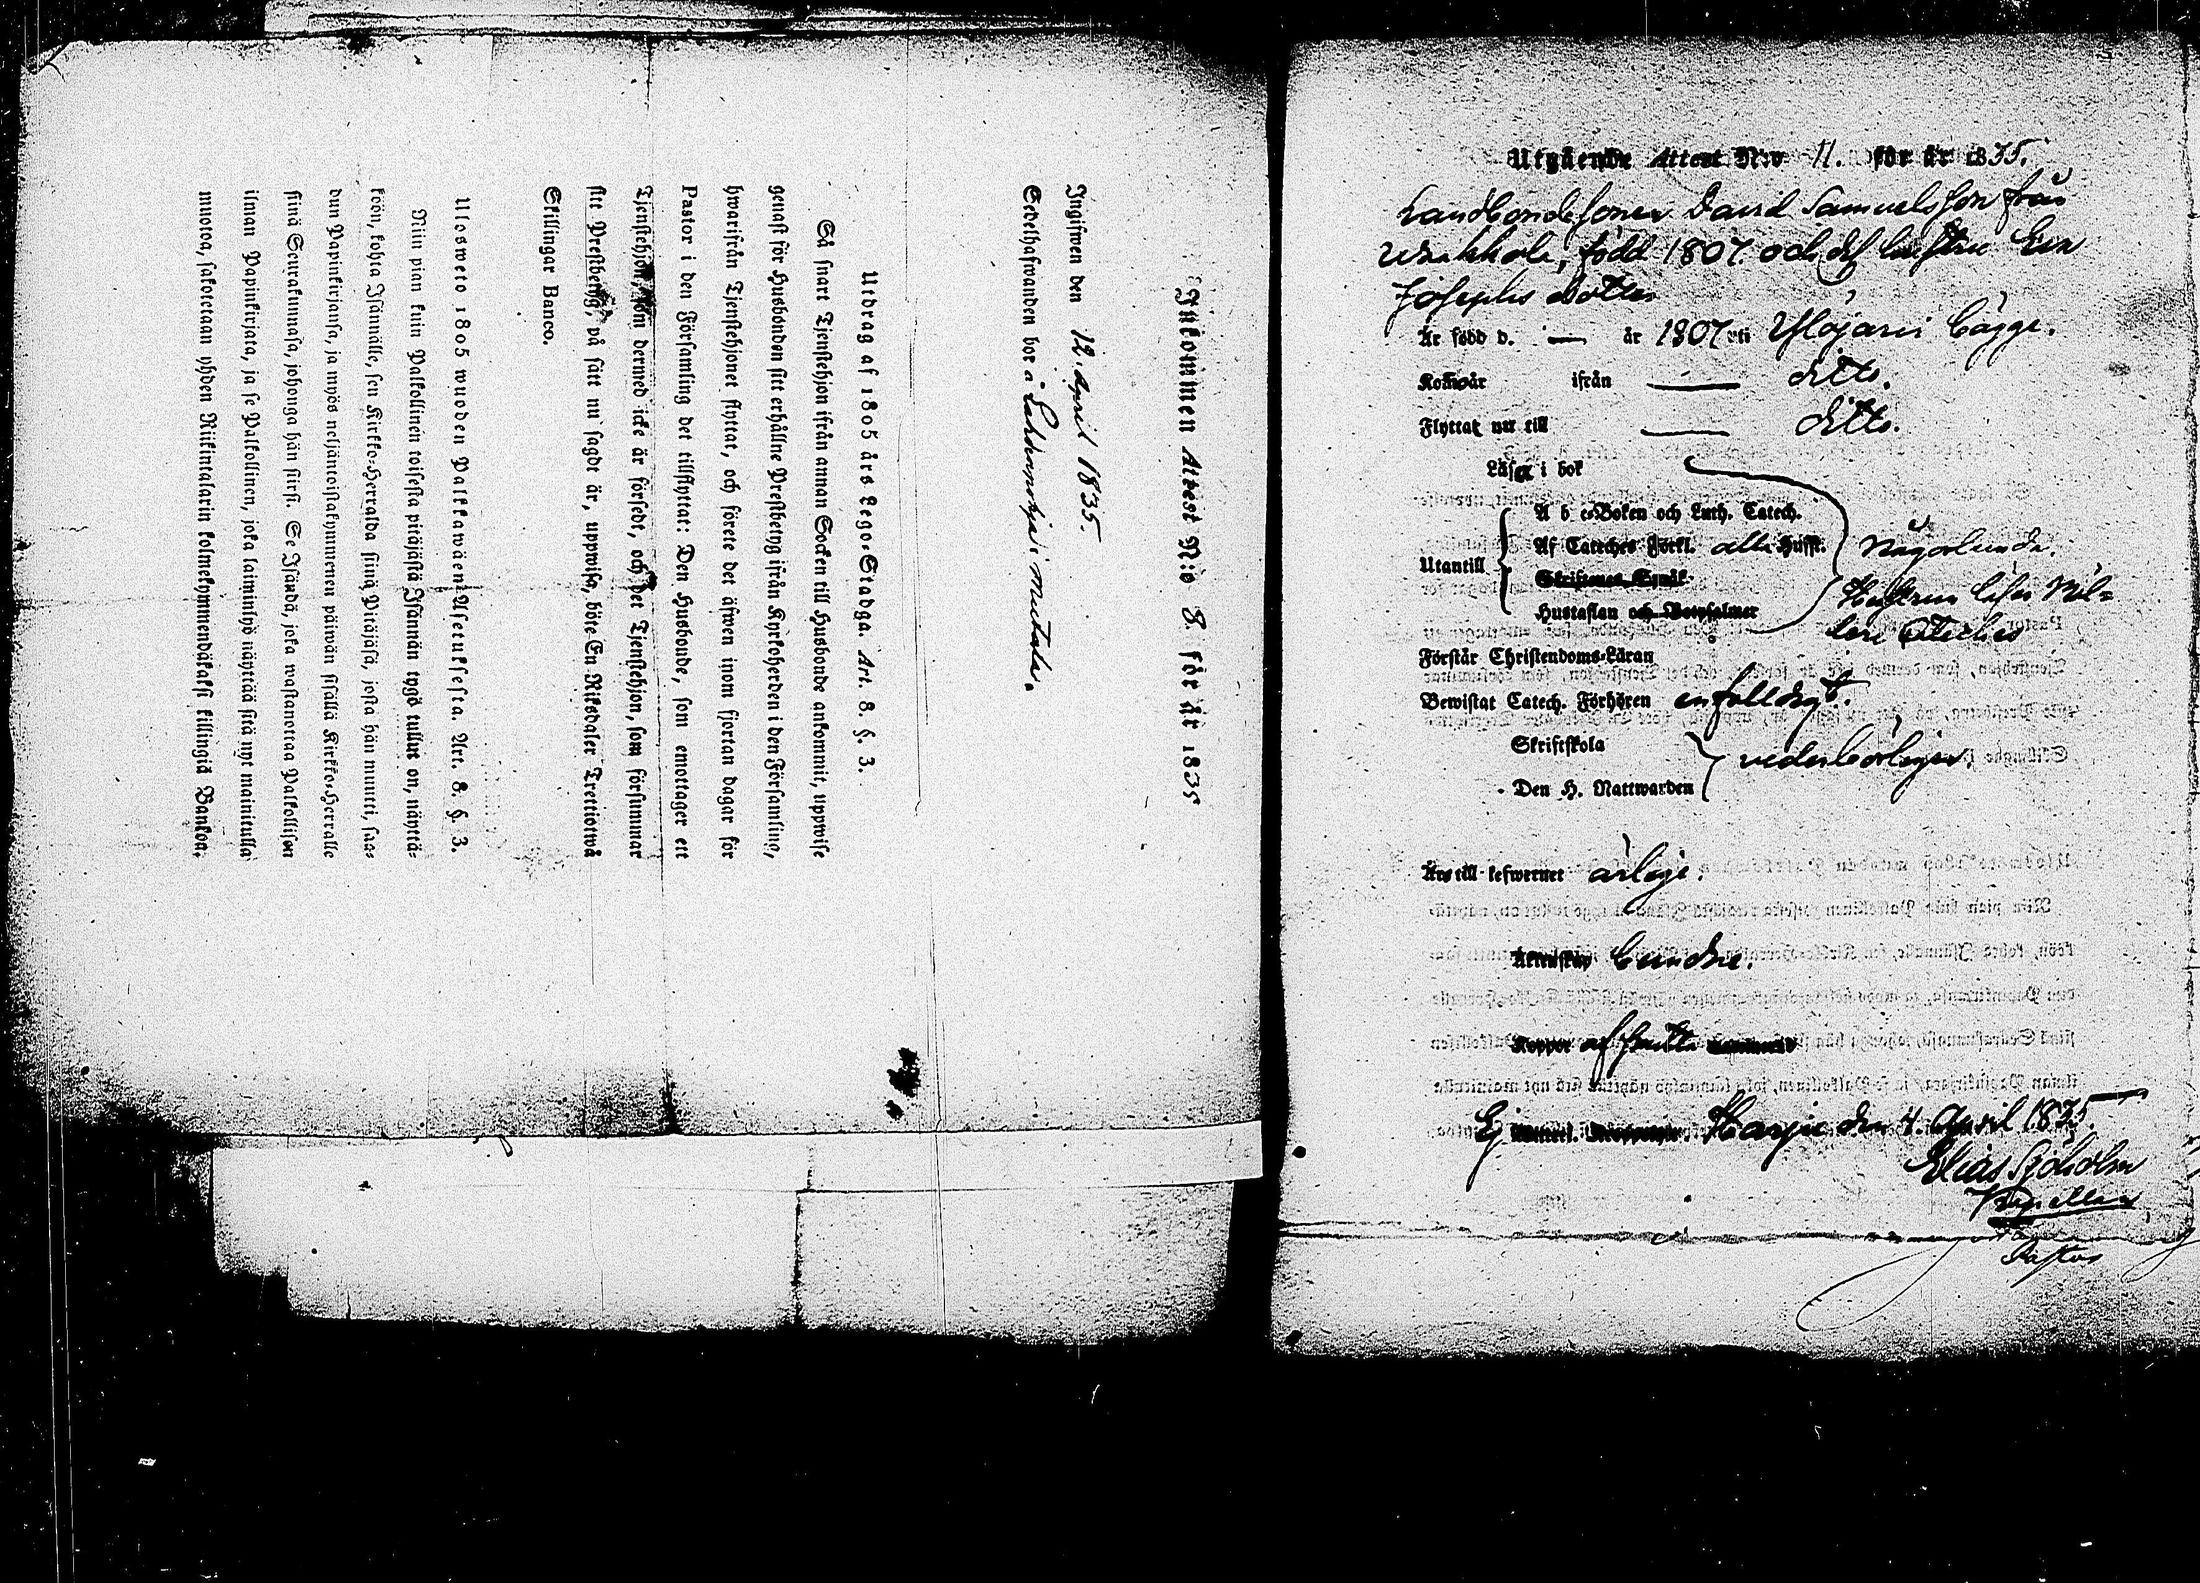 Inkommen Attest N:o 8. för år 1835
Ingifwen den 12. April 1835
Sedelhafwanden bor å Lahdenohja i Metola.
Utdrag af 1805 års Lego-Stadga. Art. 8. §. 3.
Så snart Tjenstehjon ifrån annan Socken till Husbonde ankommit, uppwise
genast för Husbonden sitt erhållne Prestbetyg ifrån Kyrkoherden i den Församling,
hwarifrån Tjenstehjonet flyttat, och förete det äfwen inom fjortan dagar för
Pastor i den Församling det tillflyttat: Den Husbonde, som emottager ett
Tjenstehjon, som dermed icke är försedt, och det Tjenstehjon, som försummar
sitt Prestbetyg, på sätt nu sagdt är, uppwisa, böte En Riksdaler Trettiotwå
Skillingar Banco.
Ulosweto 1805 wuoden Palkkawäen Asetuksesta. Art. 8. §. 3.
Niin pian kuin Palkollinen toisesta pitäjästä Isännän tygö tullut on, näyttä-
köön, kohta Isännälle, sen Kirkko-Herralda siinä Pitäjäsä, josta hän muutti, saa-
dun Papinkirjansa, ja myös neljäntoistakymmenen päiwän sisällä Kirkko-Herralle
siinä Seurakunnasa, johonga hän siirsi. Se Isändä, joka wastanottaa Palkollisen
ilman Papinkirjata, ja se Palkollinen, joka laiminlyö näyttää sitä nyt mainitulla
muotoa, sakotetaan yhden Riikintalarin kolmekymmendäkaksi killingiä Bankoa.
Utgående Attest N:o 11. för år 1835.
Landbondesonen David Samuelsson från
född 1807 och des hustru
Josephs dotter
Är född d. — år 1807 uti Ylöjärvi Cappel.
Kom år ifrån — ditto.
Flyttat nu till — ditto.
Läser i bok
A b c-Boken och Luth. Catech.
Utantill Af Cateches Förkl. alla Huffst. någorlunda.
Skriftenes Språk
Hustaflan och Botpsalmer
Hustrun läser
Cateches
Förstår Christendoms-Läran
Bewistat Catech. Förhören enfalldigt.
Skriftskola
Den H. Nattwarden vederbörligen.
Är till lefwernet ärlige.
Äktenskap bundne.
Koppor
Ej Harju den 4. April 1835.
Elias Sjöholm
Capellan
Pastor